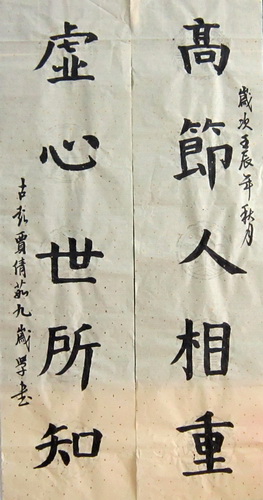 歲次壬辰年秋月
高節人相重
虛心世所知
古彭賈倩茹九歲學書